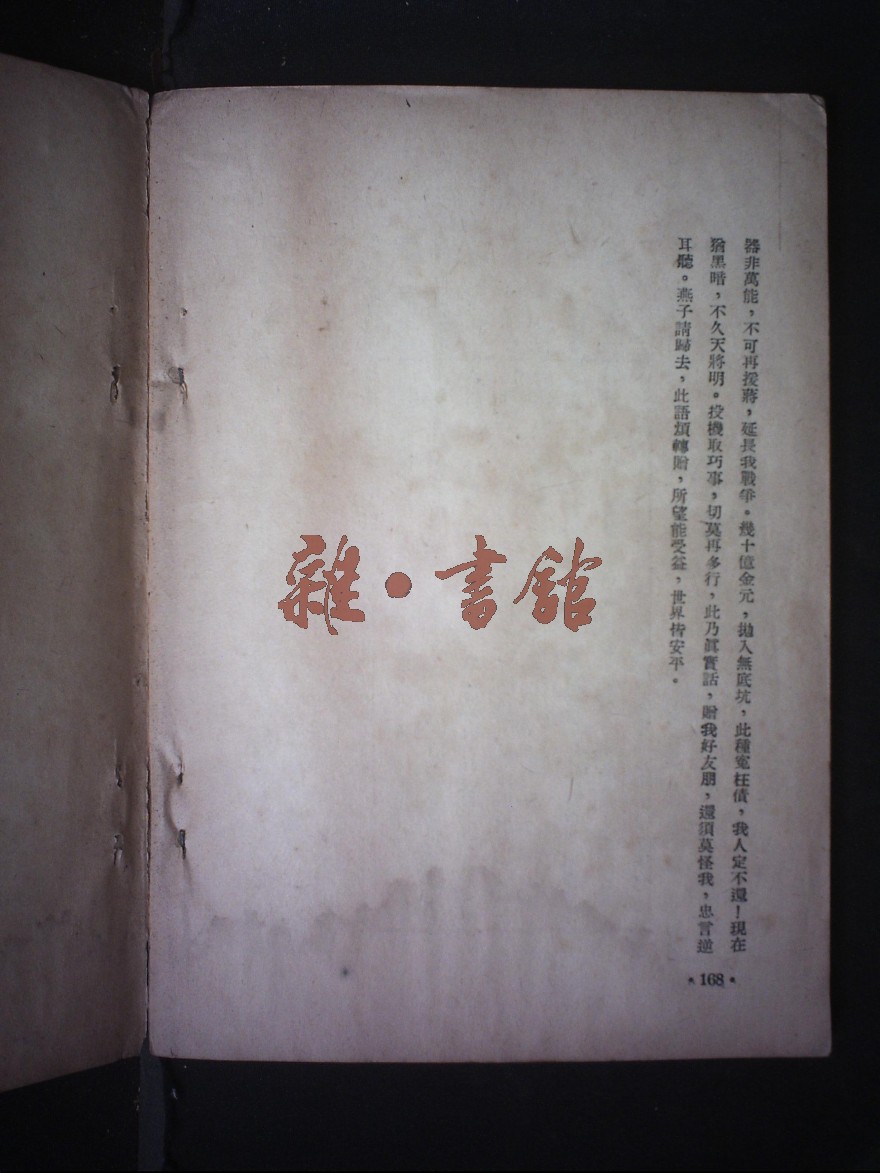 器非萬能，不可再援蔣，延長我戰爭。幾十億金元，拋入無底坑，此種寃枉債，我人定不還！現在
猶黑暗，不久天將明。投機取巧事，切莫再多行，此乃眞實話，贈我好友朋，還須莫怪我，忠言逆
耳聽。燕子請歸去，此語煩轉贈，所望能受益，世界皆安平。
•168•
雜•書館